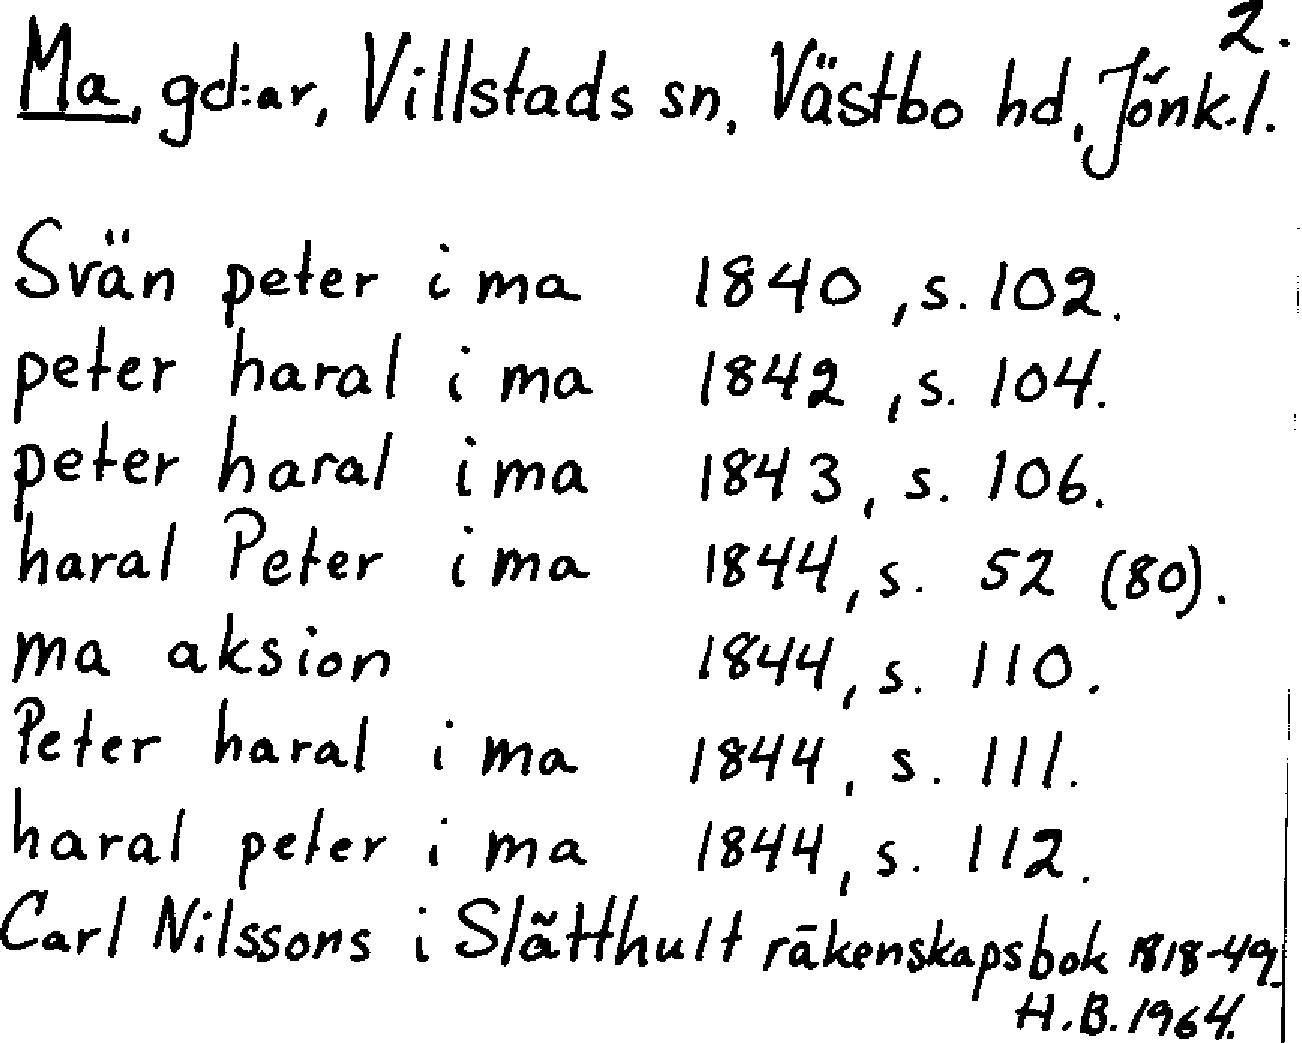 2.
Ma, gd:ar, Villstads sn, Västbo hd, Jönk.l.
Svän peter i ma 1840, s. 102.
peter haral i ma 1842, s. 104.
peter haral i ma 1843, s. 106.
haral Peter i ma 1844, s. 52 (80).
ma aksion 1844, s. 110.
Peter haral i ma 1844, s. 111.
haral peter i ma 1844, s. 112.
Carl Nilssons i Slätthult räkenskapsbok 1818-49
H.B. 1964.